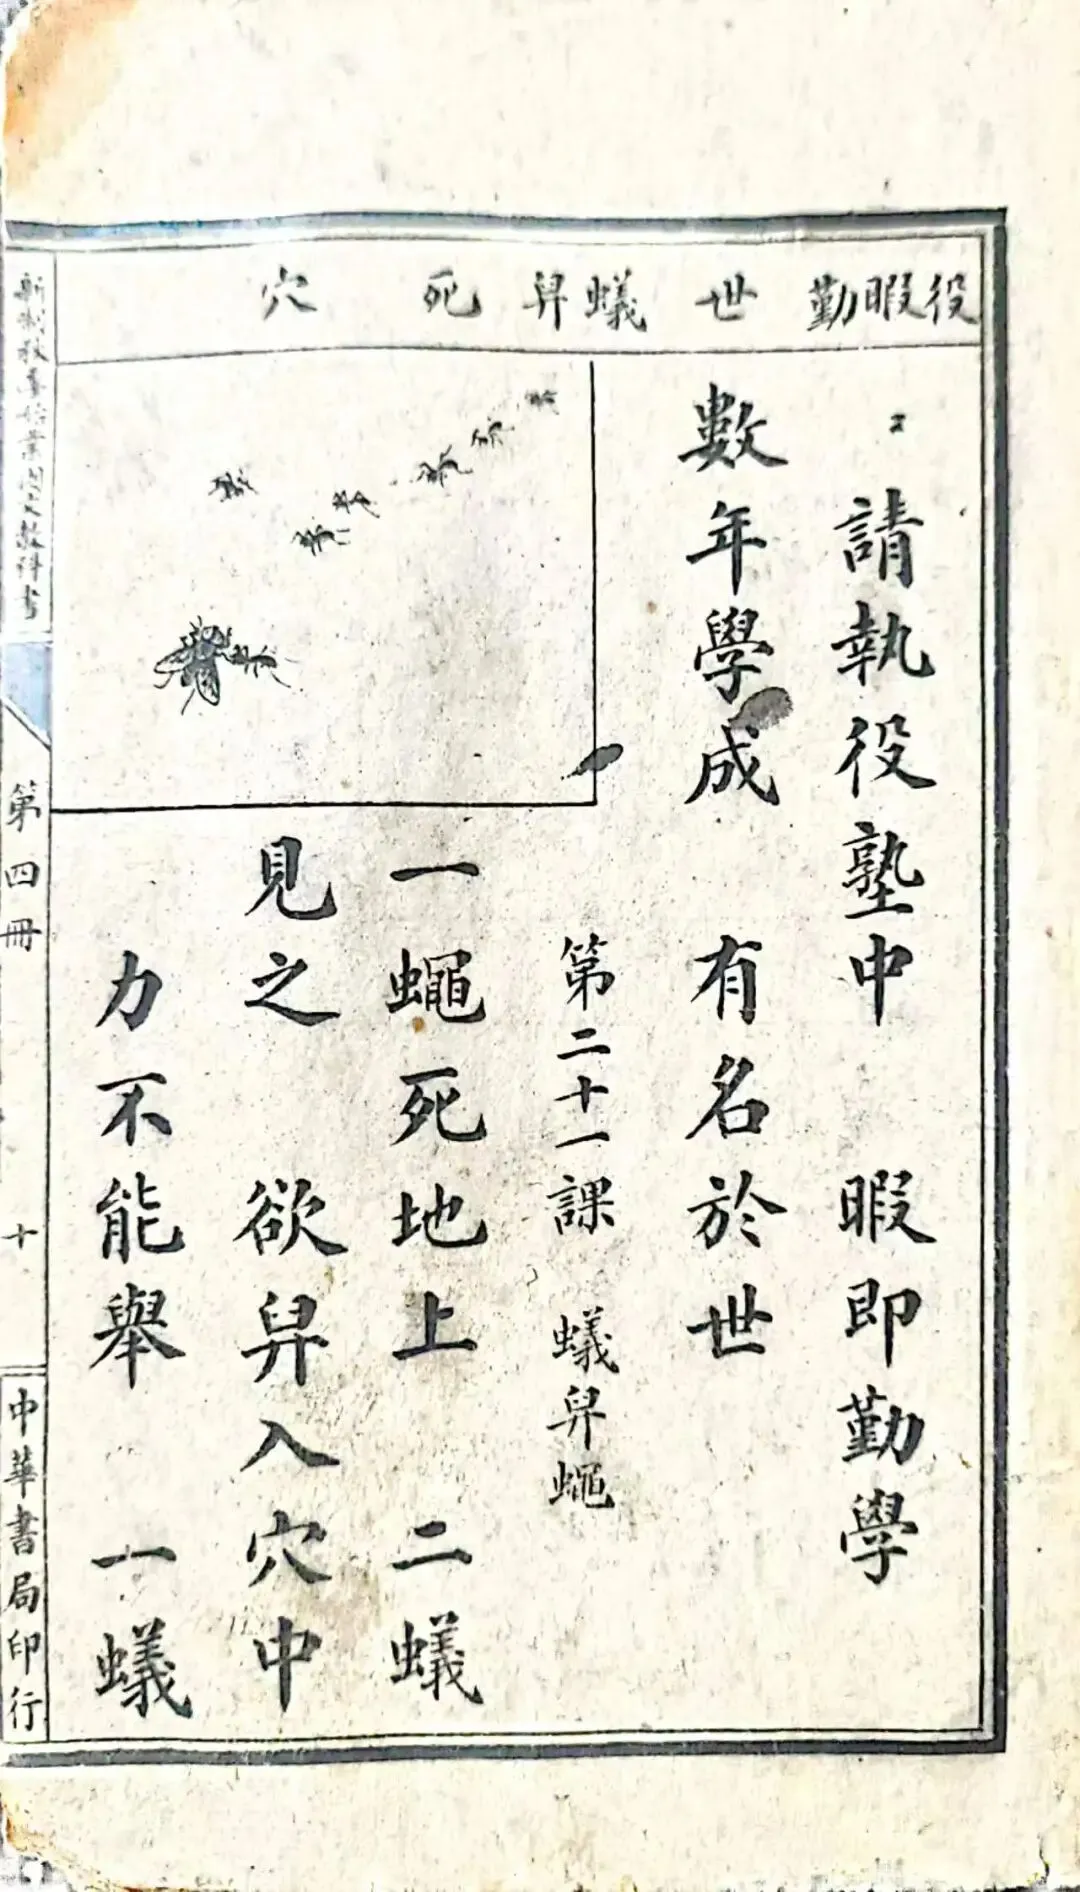 役暇勤　世　蟻舁　死　穴
請執役塾中　暇即勤學
數年學成　有名於世
第二十一課　蟻舁蠅
一蠅死地上　二蟻
見之　欲舁入穴中
力不能舉　一蟻
新制秋季始業國文教科書
第四冊
十
中華書局印行